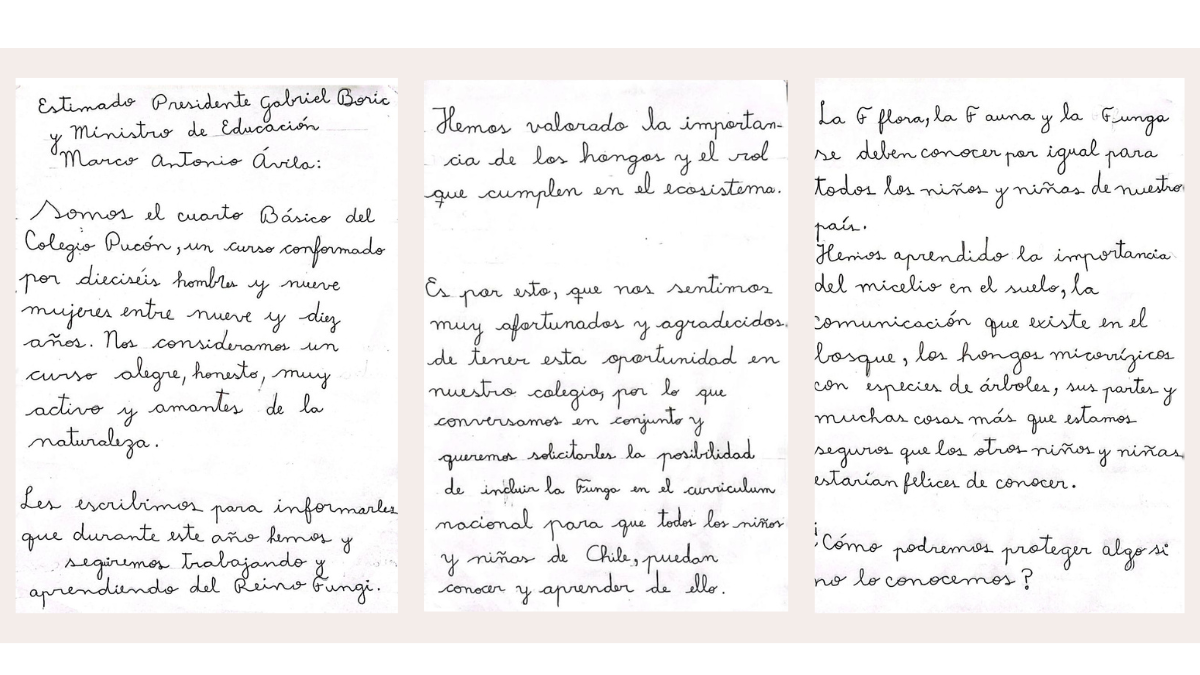 Estimado Presidente Gabriel Boric
y Ministro de Educación
Marco Antonio Ávila:
Somos el cuarto Básico del
Colegio Pucón, un curso conformado
por dieciséis hombres y nueve
mujeres entre nueve y diez
años. Nos consideramos un
curso alegre, honesto, muy
activo y amantes de la
naturaleza.
Les escribimos para informarles
que durante este año hemos y
seguiremos trabajando y
aprendiendo del Reino Fungi.
Hemos valorado la importan-
cia de los hongos y el rol
que cumplen en el ecosistema.
Es por esto, que nos sentimos
muy afortunados y agradecidos
de tener esta oportunidad en
nuestro colegio, por lo que
conversamos en conjunto y
queremos solicitarles la posibilidad
de incluir la Funga en el curriculum
nacional para que todos los niños
y niñas de Chile, puedan
conocer y aprender de ello.
La F flora, la F auna y la Funga
se deben conocer por igual para
todos los niños y niñas de nuestro
país.
Hemos aprendido la importancia
del micelio en el suelo, la
comunicación que existe en el
bosque, los hongos micorrízicos
con especies de árboles, sus partes y
muchas cosas más que estamos
seguros que los otros niños y niñas
estarían felices de conocer.
¿Cómo podremos proteger algo si
no lo conocemos?